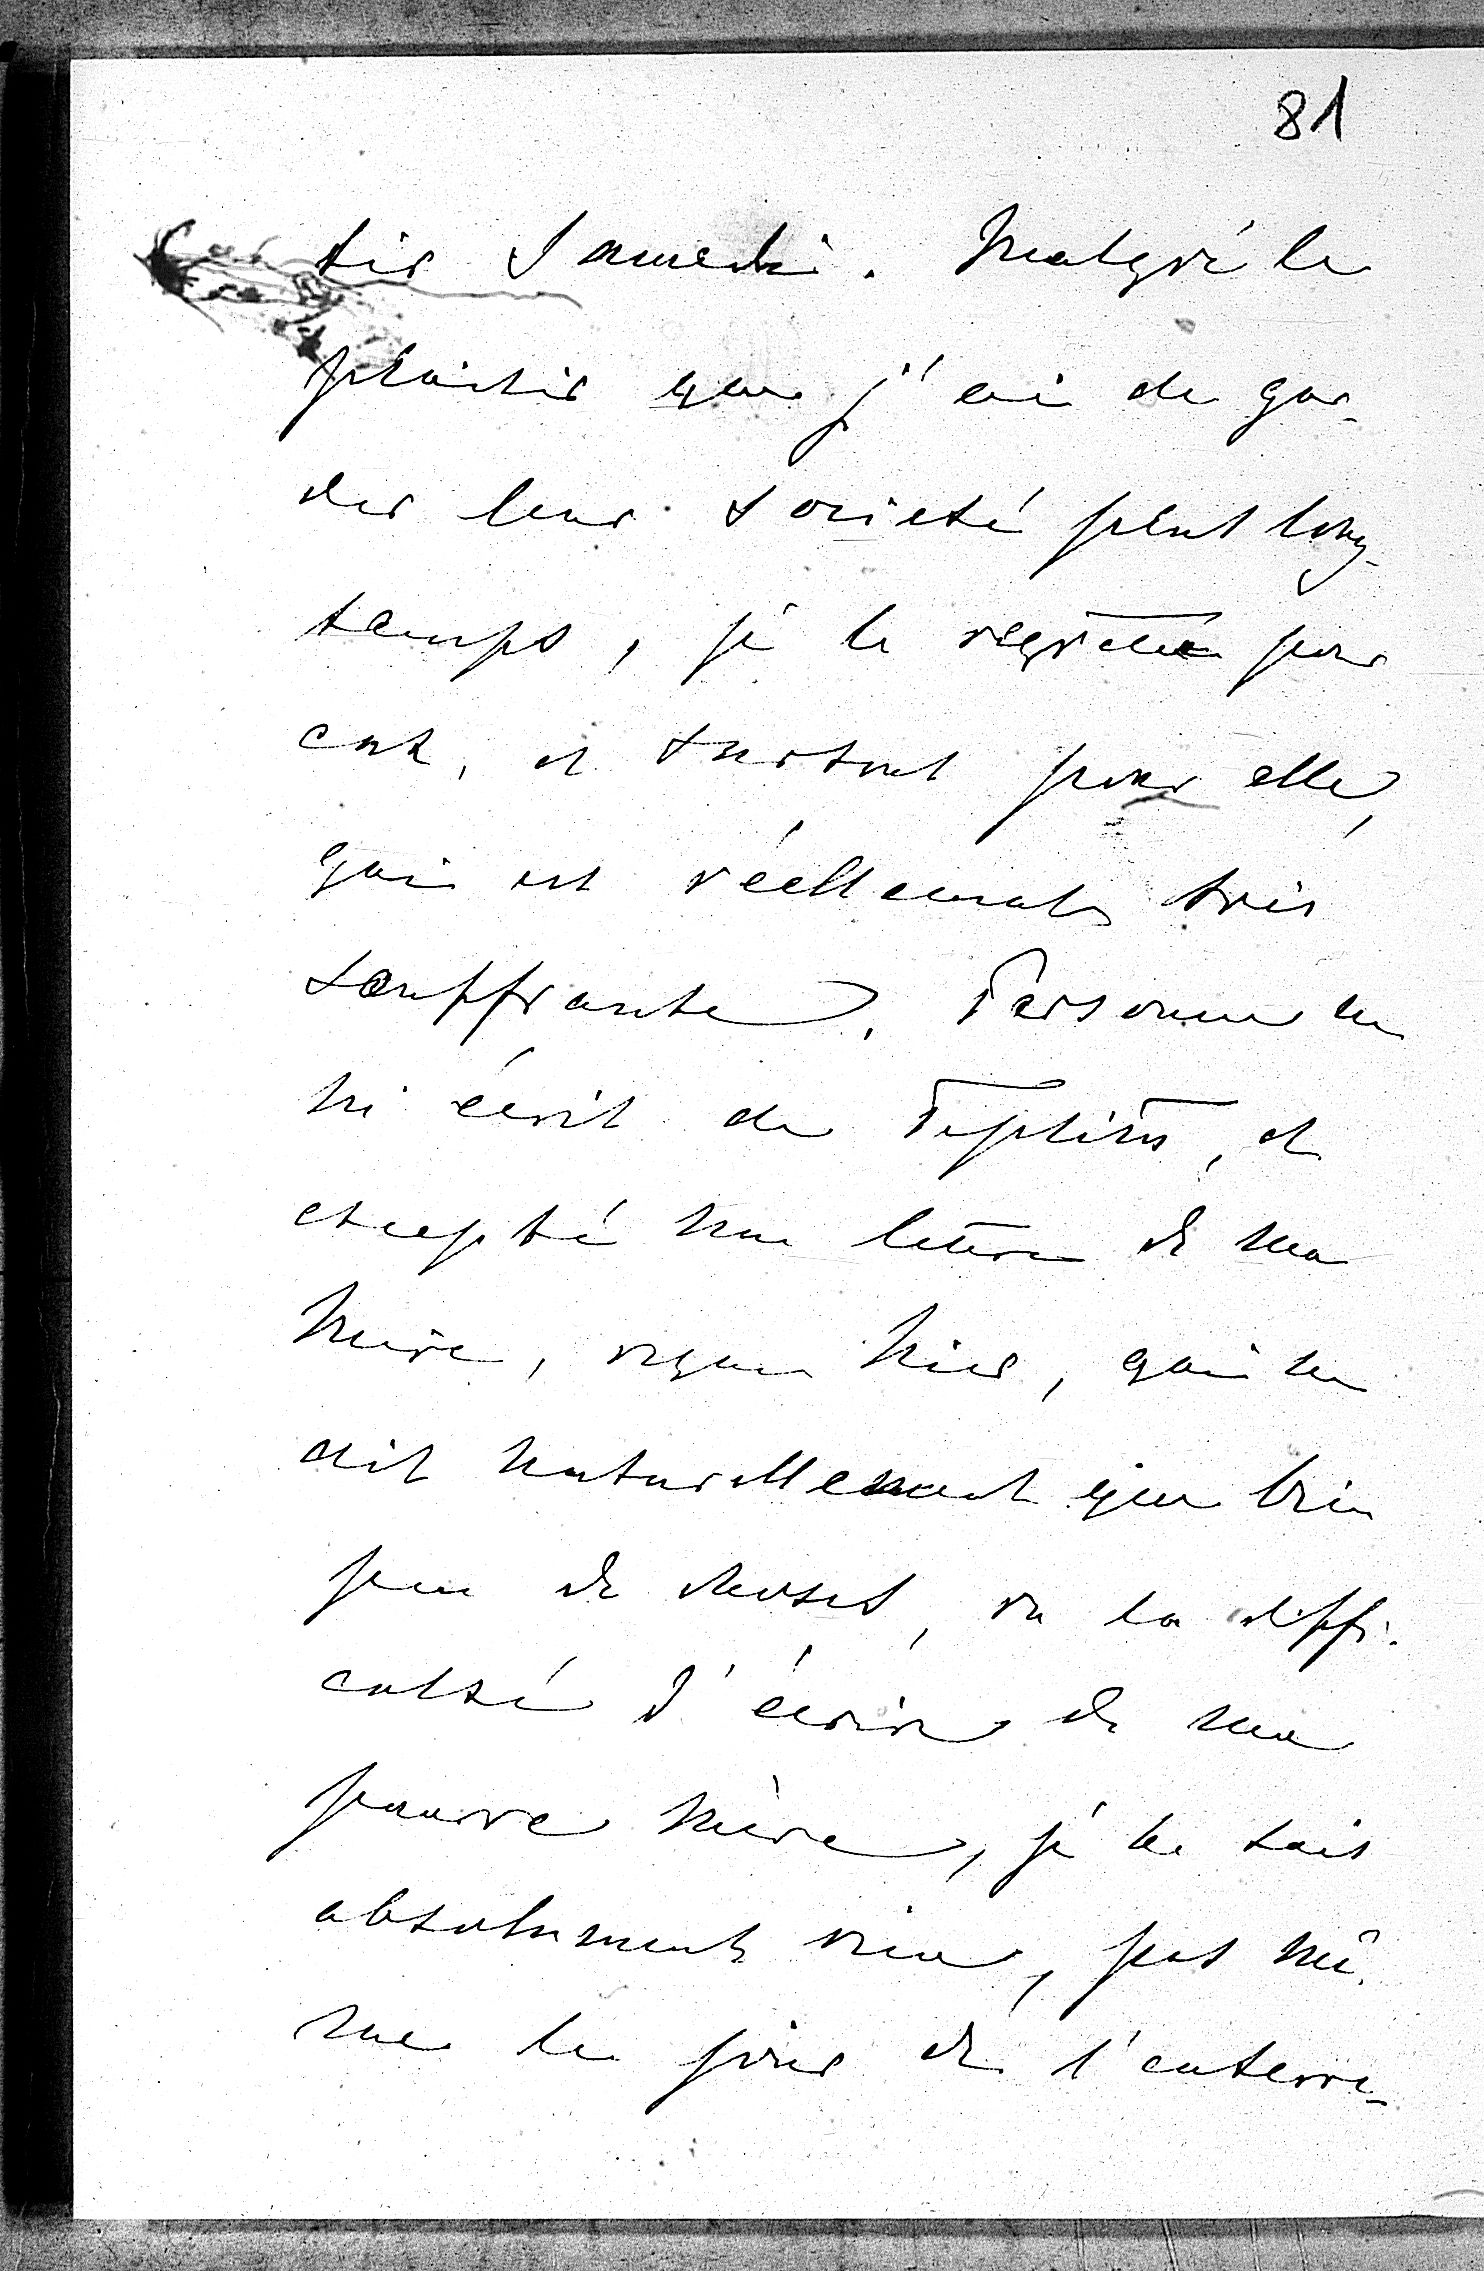 81
tir Samedi. Malgré le
plaisir que j'ai de gar-
der leur société plus long-
temps, je le regrette pour
eux, et surtout pour elle,
qui est réellement très
souffrante. Personne ne
m'écrit de Teplitz, et
excepté une lettre de ma
mère, reçue hier, qui ne
dit naturellement que bien
peu de choses, vu la diffi-
culté d'écrire de ma
pauvre mère, je ne sais
absolument rien, pas mê-
me le jour de l'enterre-